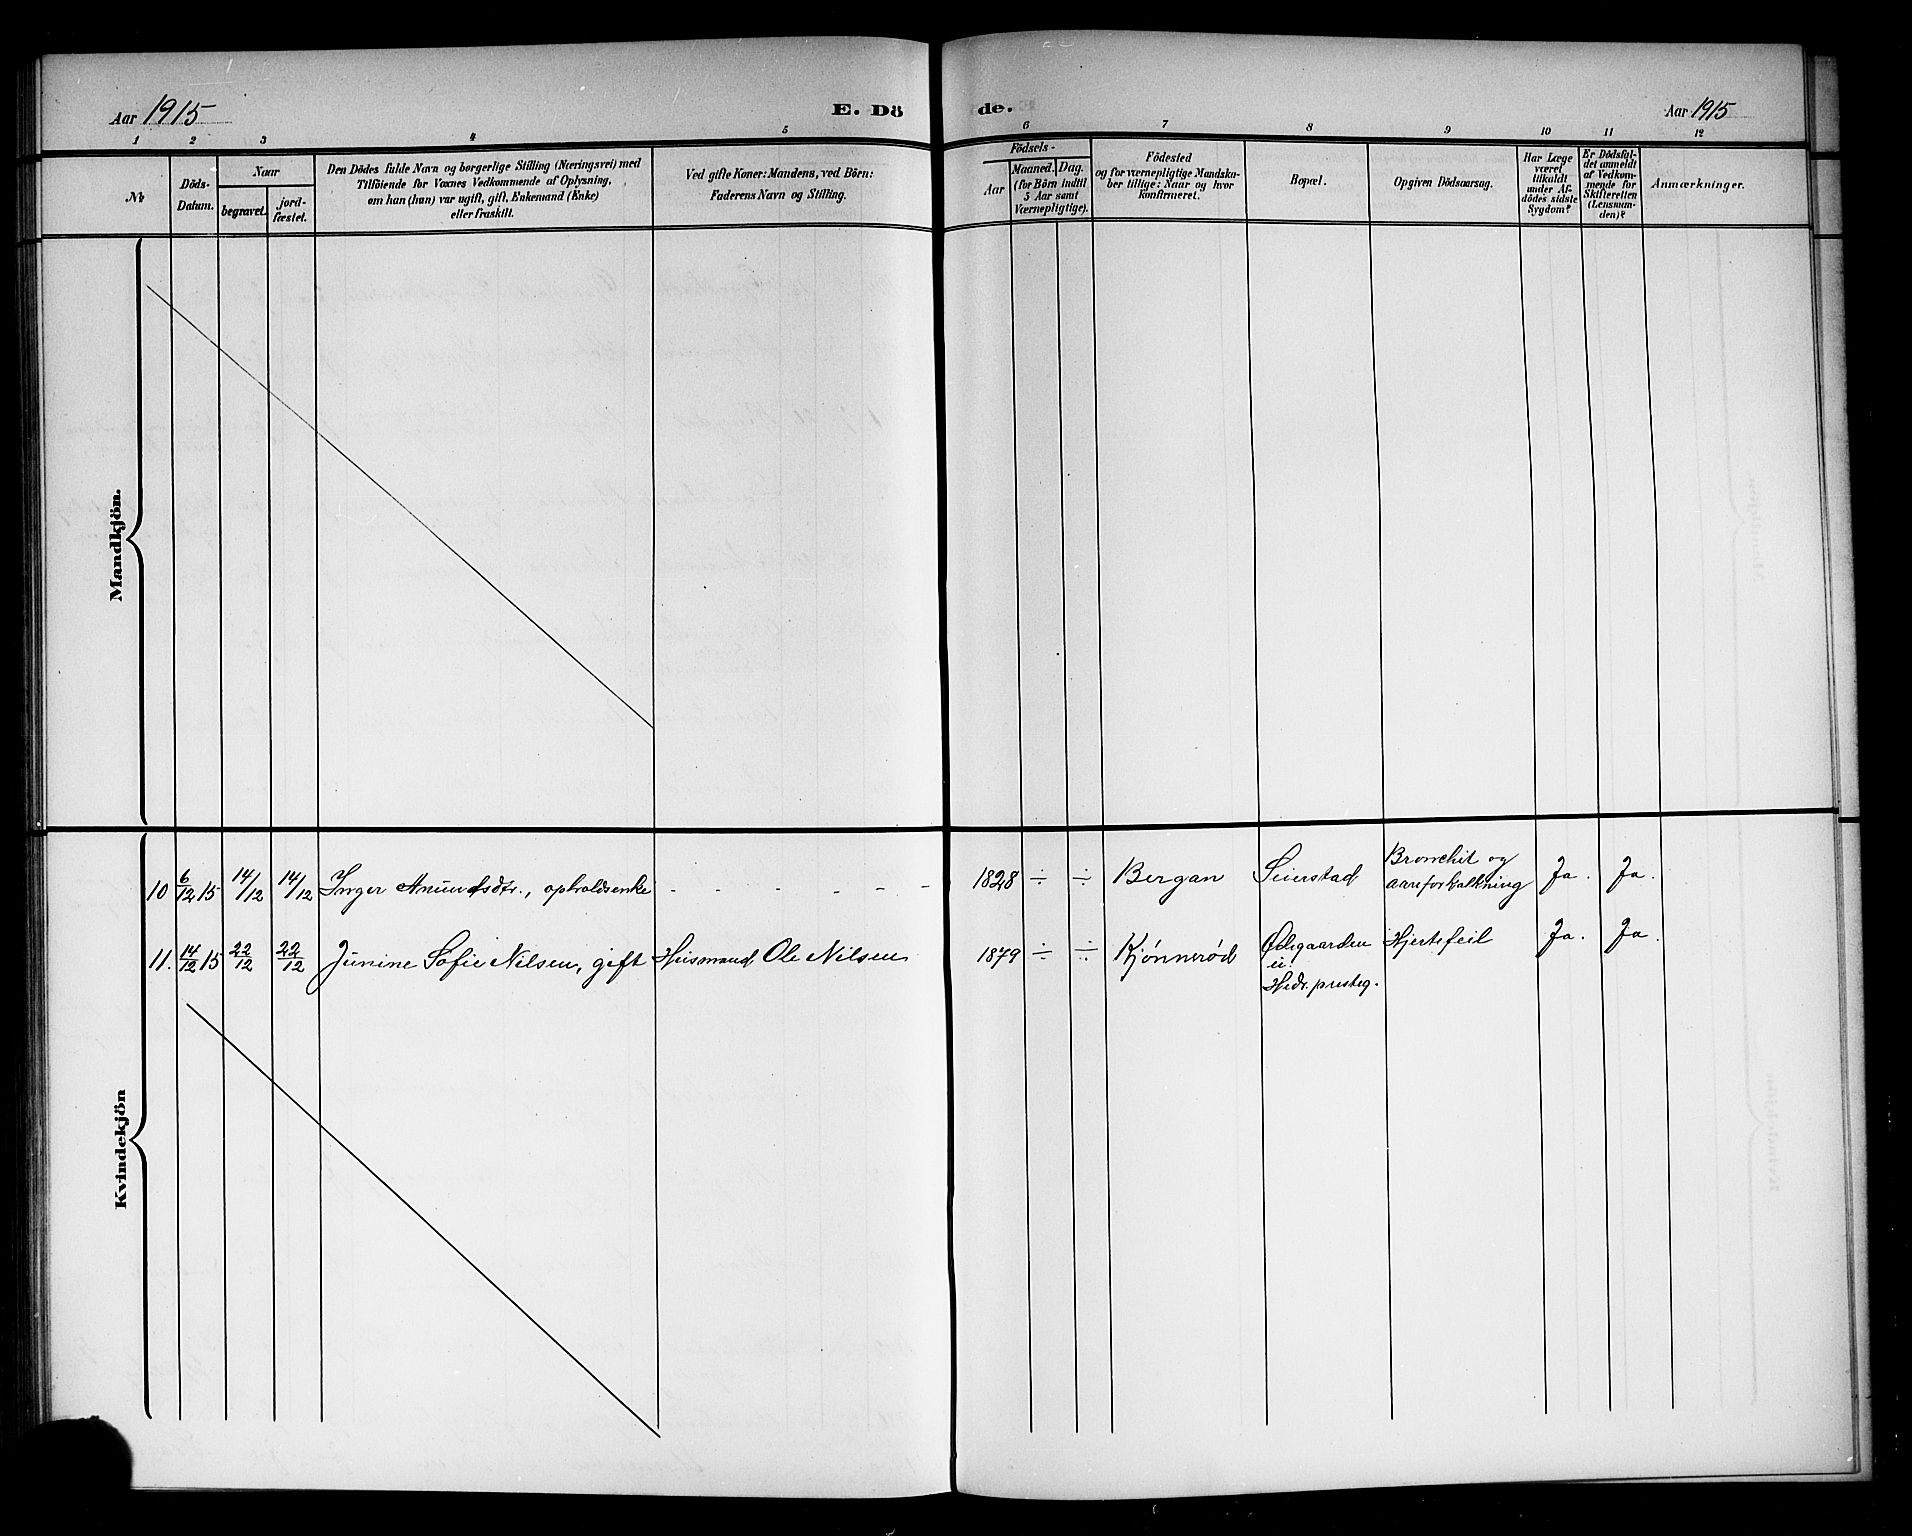 Aar 1915
E. Dö
de.
Aar 1915
1 2 3 4 5 6 7 8 9 10 11 12
No
Döds-
Datum.
Naar
begravet.
jord-
fæstet.
Den Dödes fulde Navn og borgerlige Stilling (Næringsvei) med
Tilföiende for Voxnes Vedkommende af Oplysning,
om han (hun) var ugift, gift, Enkemand (Enke)
eller fraskilt.
Ved gifte Koner: Mandens, ved Börn:
Faderens Navn og Stilling.
Födsels-
Aar
Maaned.
Dag.
(for Börn indtil
5 Aar samt
Værnepligtige).
Födested
og for værnepligtige Mandska-
ber tillige: Naar og hvor
konfirmeret.
Bopæl.
Opgiven Dödsaarsag.
Har Læge
været
tilkaldt
under Af-
dödes sidste
Sygdom?
Er Dödsfal-
det anmeldt
af Vedkom-
mende for
Skifteretten
(Lensman-
den)?
Anmærkninger.
Mandkjön.
Kvindekjön
10 6/12 15 14/12 14/12 Inger Anundsdtr., opholdsenke - - - - - - 1828 ÷ ÷ Bergan Seierstad Bronchit og
aareforkalkning Ja. Ja.
11. 14/12 15 22/12 22/12 Junine Sofie Nilsen, gift Husmand Ole Nilsen 1879 ÷ ÷ Kjønnerød Ødegaarden
u.
Hedr. presteg. Hjertefeil Ja. Ja.